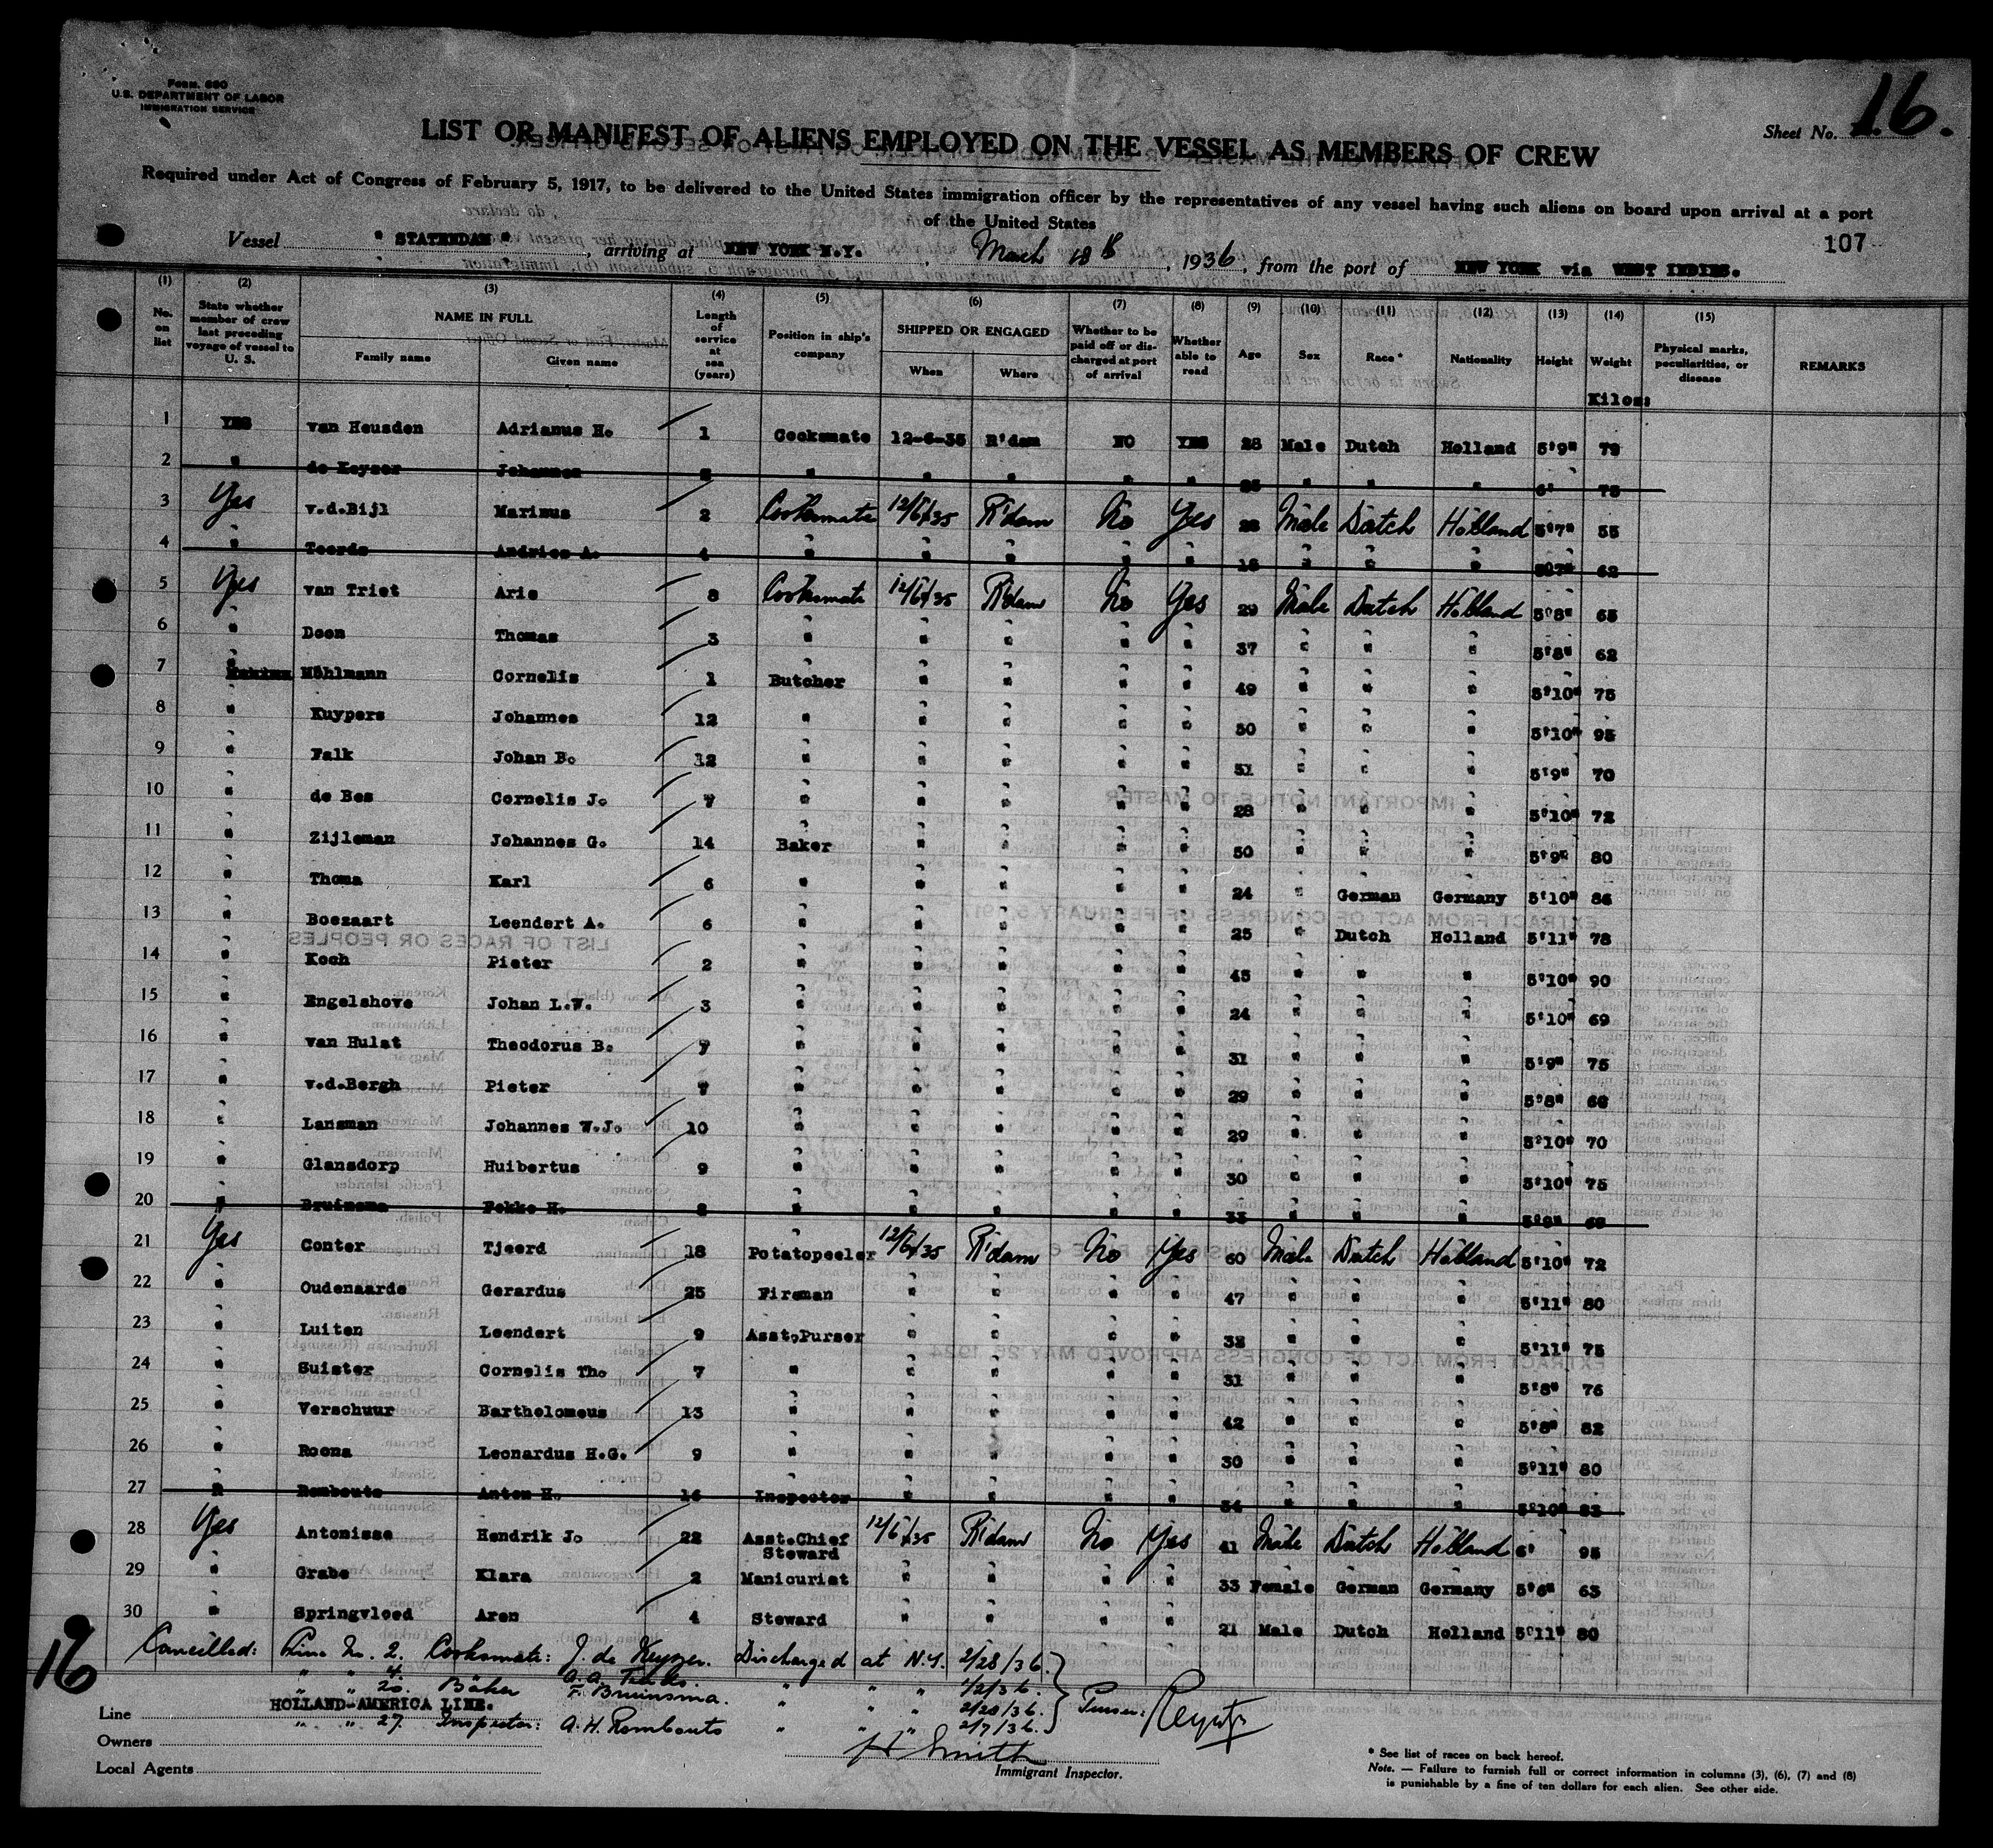 Form 680
U.S. DEPARTMENT OF LABOR
IMMIGRATION SERVICE
Sheet No. 16.
LIST OR MANIFEST OF ALIENS EMPLOYED ON THE VESSEL AS MEMBERS OF CREW
Required under Act of Congress of February 5, 1917, to be delivered to the United States immigration officer by the representatives of any vessel having such aliens on board upon arrival at a port
of the United States
107
Vessel " STATENDAM ", arriving at NEW YORK N.Y., March 18th, 1936, from the port of NEW YORK via WEST INDIES.
(1) No. on list (2) State whether member of crew last preceding voyage of vessel to U. S. (3) NAME IN FULL Family name Given name (4) Length of service at sea (years) (5) Position in ship's company (6) SHIPPED OR ENGAGED When Where (7) Whether to be paid off or discharged at port of arrival (8) Whether able to read (9) Age (10) Sex (11) Race * (12) Nationality (13) Height (14) Weight (15) Physical marks, peculiarities, or disease REMARKS
Kilos:
1 YES van Heusden Adrianus H. 1 Cooksmate 12-6-35 R'dam NO YES 28 Male Dutch Holland 5'9" 79
2 " de Keyzer Johannes " " " " " " " " 6' 75
3 Yes v.d.Bijl Marinus 2 Cooksmate 12/6/35 R'dam No Yes 28 Male Dutch Holland 5'7" 55
4 " Teerds Andries A. 4 " " " " " 18 " " " 5'7" 62
5 Yes van Triet Arie 8 Cooksmate 12/6/35 R'dam No Yes 29 Male Dutch Holland 5'8" 65
6 " Doen Thomas 3 " " " " " 37 " " " 5'8" 62
7 " Möhlmann Cornelis 1 Butcher " " " " 49 " " " 5'10" 75
8 " Kuypers Johannes 12 " " " " " 50 " " " 5'10" 95
9 " Falk Johan B. 12 " " " " " 51 " " " 5'9" 70
10 " de Bes Cornelis J. 7 " " " " " 28 " " " 5'10" 72
11 " Zijleman Johannes G. 14 Baker " " " " 50 " " " 5'9" 80
12 " Thoma Karl 6 " " " " " 24 " German Germany 5'10" 86
13 " Boezaart Leendert A. 6 " " " " " 25 " Dutch Holland 5'11" 78
14 " Koch Pieter 2 " " " " " 45 " " " 5'10" 90
15 " Engelshove Johan L.W. 3 " " " " " 24 " " " 5'10" 69
16 " van Hulst Theodorus B. 7 " " " " " 31 " " " 5'9" 75
17 " v.d.Bergh Pieter 7 " " " " " 29 " " " 5'8" 68
18 " Lansman Johannes W.J. 10 " " " " " 29 " " " 5'10" 70
19 " Glansdorp Huibertus 9 " " " " " 30 " " " 5'10" 75
20 " Bruinsma Fokke H. 8 " " " " " 33 " " "
21 Yes Conter Tjeerd 18 Potatopeeler 12/6/35 R'dam No Yes 60 Male Dutch Holland 5'10" 72
22 " Oudenaarde Gerardus 25 Fireman " " " " 47 " " " 5'11" 80
23 " Luiten Leendert 9 Asst.Purser " " " " 32 " " " 5'11" 75
24 " Suister Cornelis Th. 7 " " " " " 31 " " " 5'8" 76
25 " Verschuur Bartholomeus 13 " " " " " 42 " " " 5'8" 82
26 " Roona Leonardus H.G. 9 " " " " " 30 " " " 5'11" 80
27 " Rombouts Anton H. 16 Inspector " " " " 54 " " " 5'10" 83
28 Yes Antonisse Hendrik J. 22 Asst.Chief Steward 12/6/35 R'dam No Yes 41 Male Dutch Holland 6' 95
29 " Grabe Klara 2 Manicurist " " " " 33 Female German Germany 5'6" 63
30 " Springvloed Aren 4 Steward " " " " 21 Male Dutch Holland 5'11" 80
16
Cancelled: Line No. 2. Cooksmate: J. de Keyzer. Discharged at N.Y. 2/28/36.
" " 4. " A.A. Teerds. " " " 1/2/36.
" " 20. Baker F. Bruinsma. " " " 2/28/36.
" " 27. Inspector: A.H. Rombouts " " " 2/7/36.
Purser:
Line HOLLAND-AMERICA LINE.
Owners
Local Agents
H Smith
Immigrant Inspector.
* See list of races on back hereof.
Note. — Failure to furnish full or correct information in columns (3), (6), (7) and (8)
is punishable by a fine of ten dollars for each alien. See other side.